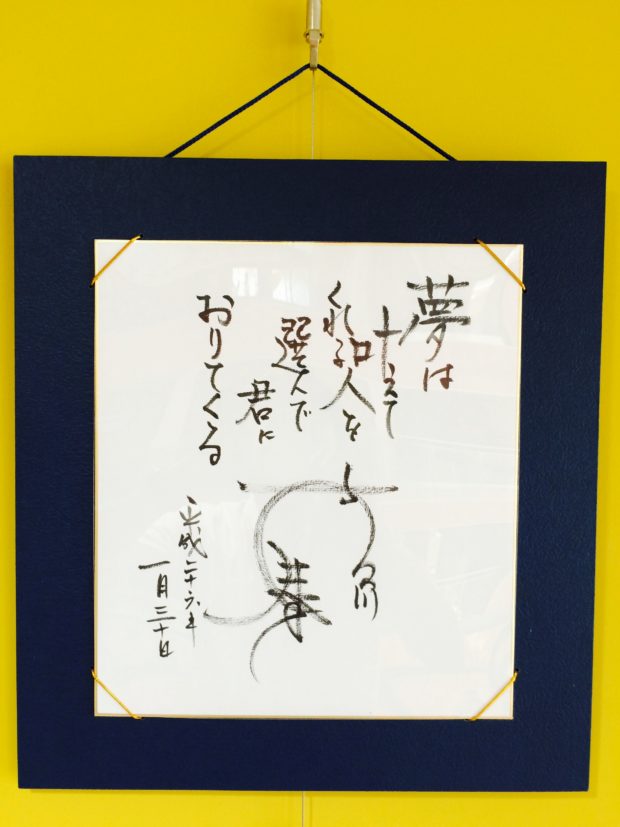 夢は
叶えて
くれる人を
選んで
君に
おりてくる
平成二十六年
一月三十日